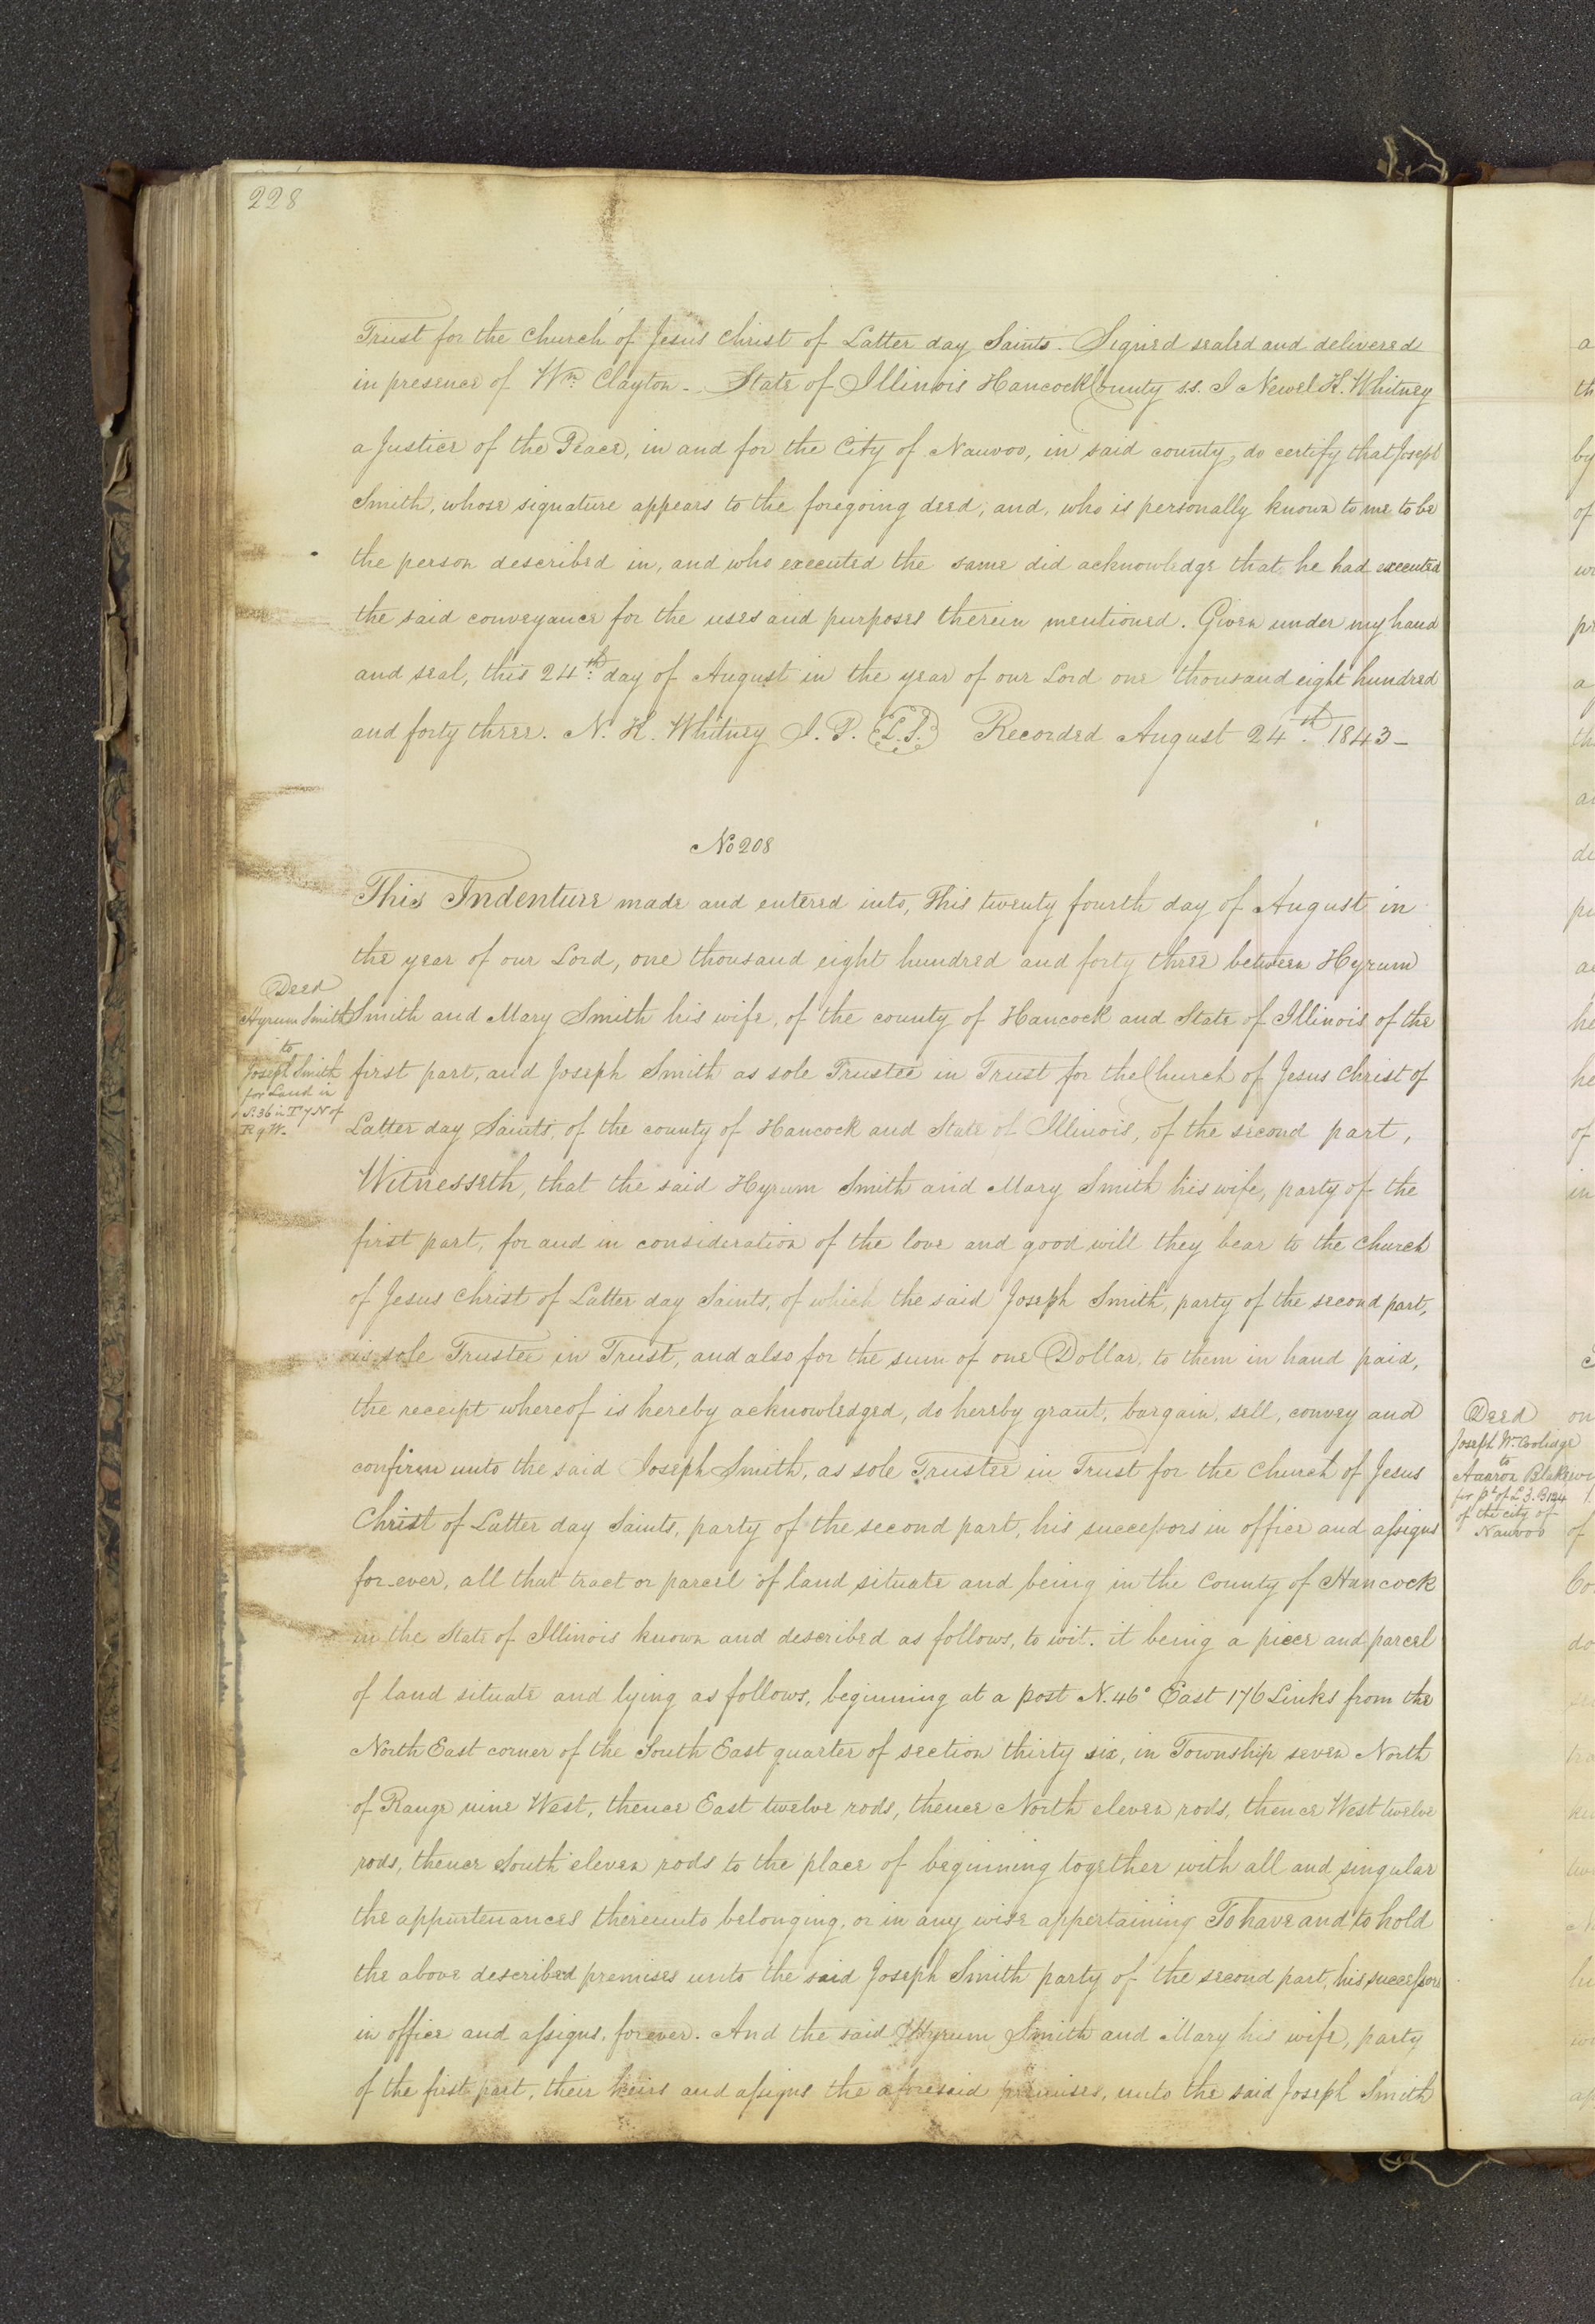 228
Trust for the Church of Jesus Christ of Latter day Saints. Signed sealed and delivered
in presence of Wm. Clayton - State of Illinois Hancock County s.s. I Newel K. Whitney
a Justice of the Peace, in and for the City of Nauvoo, in said county, do certify that Joseph
Smith, whose signature appears to the foregoing deed, and, who is personally known to me to be
the person described in, and who executed the same did acknowledge that he had executed
the said conveyance for the uses and purposes therein mentioned. Given under my hand
and seal, this 24th. day of August in the year of our Lord one thousand eight hundred
and forty three. N. K. Whitney J. P. L.S. Recorded August 24th. 1843-
No 208
This Indenture made and entered into, This twenty fourth day of August in
the year of our Lord, one thousand eight hundred and forty three between Hyrum
Smith and Mary Smith his wife, of the county of Hancock and State of Illinois of the
first part, and Joseph Smith as sole Trustee in Trust for the Church of Jesus Christ of
Latter day Saints, of the county of Hancock and State of Illinois, of the second part,
Witnesseth, that the said Hyrum Smith and Mary Smith his wife, party of the
first part, for and in consideration of the love and good will they bear to the Church
of Jesus Christ of Latter day Saints, of which the said Joseph Smith, party of the second part,
is sole Trustee in Trust, and also for the sum of one Dollar, to them in hand paid,
the receipt whereof is hereby acknowledged, do hereby grant, bargain, sell, convey and
confirm unto the said Joseph Smith, as sole Trustee in Trust for the Church of Jesus
Christ of Latter day Saints, party of the second part, his successors in office and assigns
for-ever, all that tract or parcel of land situate and being in the County of Hancock
in the State of Illinois known and described as follows, to wit. it being a piece and parcel
of land situate and lying as follows, beginning at a post N. 46° East 176 Links from the
North East corner of the South East quarter of section thirty six, in Township seven North
of Range nine West, thence East twelve rods, thence North eleven rods, thence West twelve
rods, thence South eleven rods to the place of beginning together with all and singular
the appurtenances thereunto belonging, or in any wise appertaining To have and to hold
the above described premises unto the said Joseph Smith party of the second part, his successors
in office and assigns, forever. And the said Hyrum Smith and Mary his wife, party
of the first part, their heirs and assigns the aforesaid premises, unto the said Joseph Smith
Deed
Hyrum Smith
to
Joseph Smith
for Land in
S. 36 in T 7 N of
R 9 W.
Deed
Joseph W. Coolidge
to
Aaaron Blake
for pt of L 3. B 124
of the city of
Nauvoo